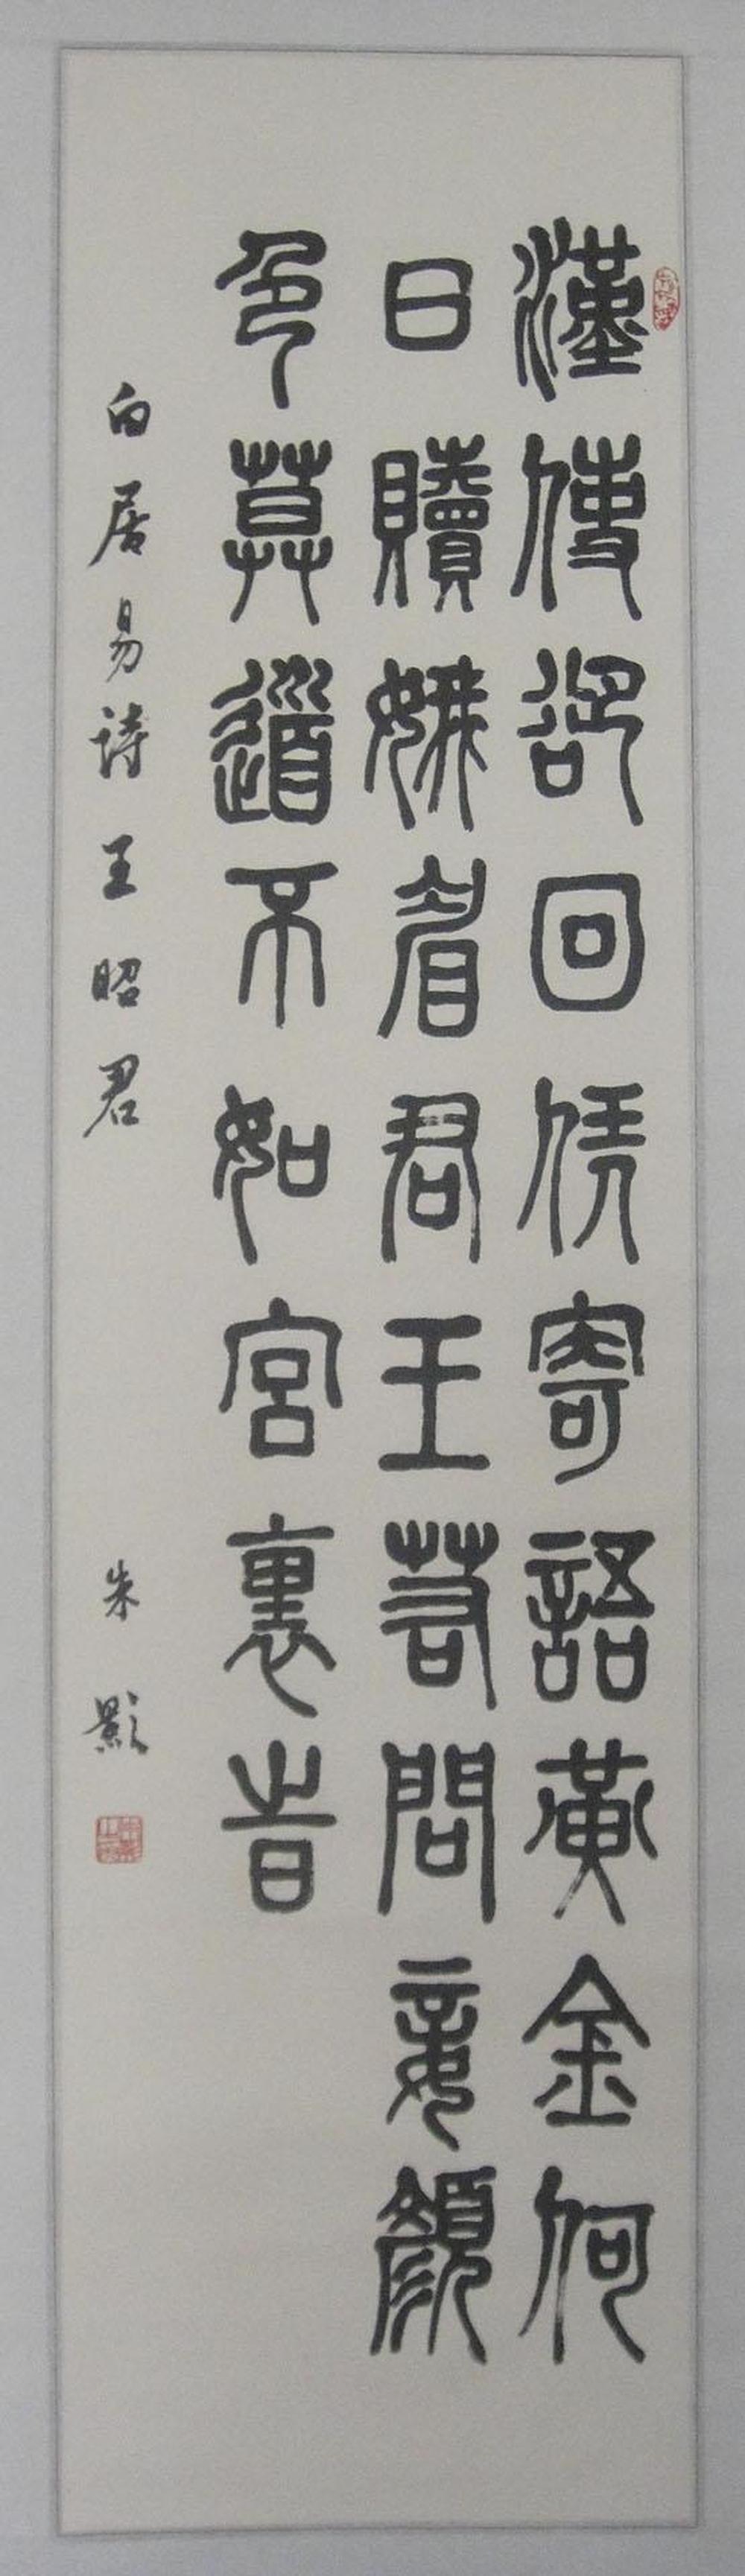 漢使卻回凭寄語黃金何
日贖娥眉君王若問妾顏
色莫道不如宮裏旹
白居易詩王昭君 朱影